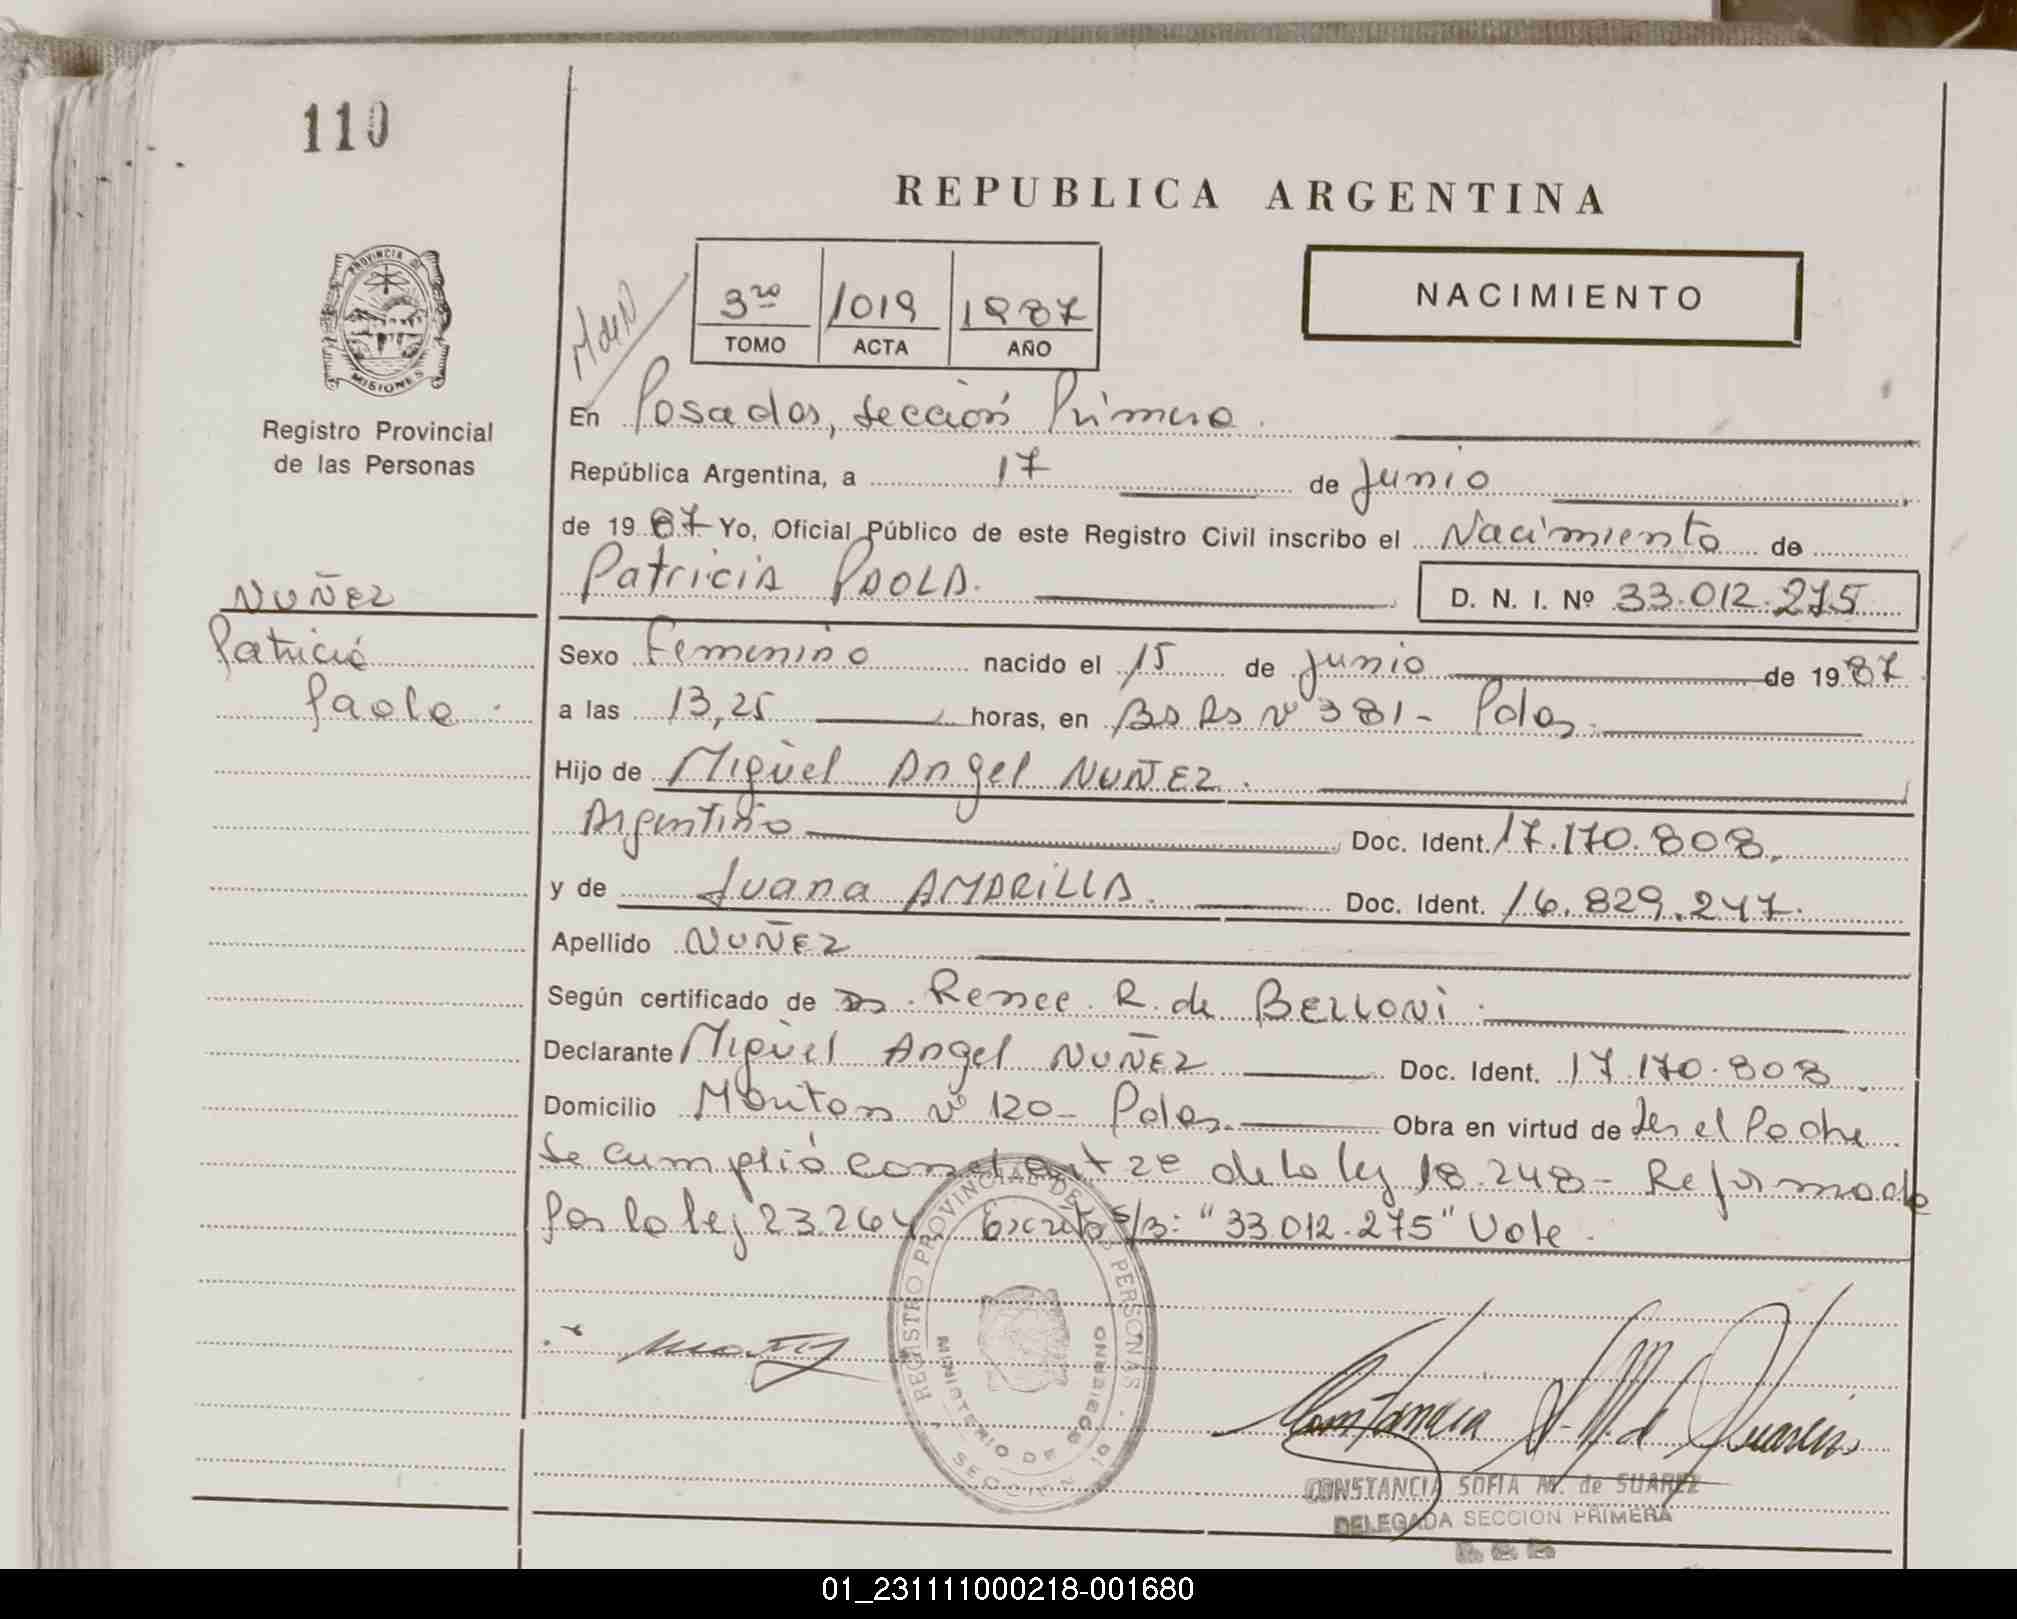 110
REPUBLICA ARGENTINA
PROVINCIA D
MISIONES
3ro 1019 1987
TOMO ACTA AÑO
NACIMIENTO
Registro Provincial
de las Personas
En Posadas, Sección Primera.
República Argentina, a 17 de Junio
de 1987 Yo, Oficial Público de este Registro Civil inscribo el Nacimiento de
Patricia PAOLA.
D. N. I. Nº 33.012.275
NUÑEZ
Patricia
Paola
Sexo Femenino nacido el 15 de junio de 1987
a las 13,25 horas, en Bs As Nº 381- Pdas.
Hijo de Miguel Angel NUÑEZ.
Argentino Doc. Ident. 17.170.808,
y de Juana AMARILLA. Doc. Ident. 16.829.247.
Apellido NUÑEZ
Según certificado de Renee R. de BELLONI.
Declarante Miguel Angel NUÑEZ Doc. Ident. 17.170.808.
Domicilio Nº 120- Pdas. Obra en virtud de Ser el Padre
Se cumplió con el art 2º de la ley 18.248- Reformada
Por la ley 23.264. Escrito S/B: "33.012.275" Vale.
REGISTRO PROVINCIAL DE LAS PERSONAS
MINISTERIO DE GOBIERNO
SECCION 1º
Constancia S. M. de Suarez
CONSTANCIA SOFIA M. de SUAREZ
DELEGADA SECCION PRIMERA
01_231111000218-001680